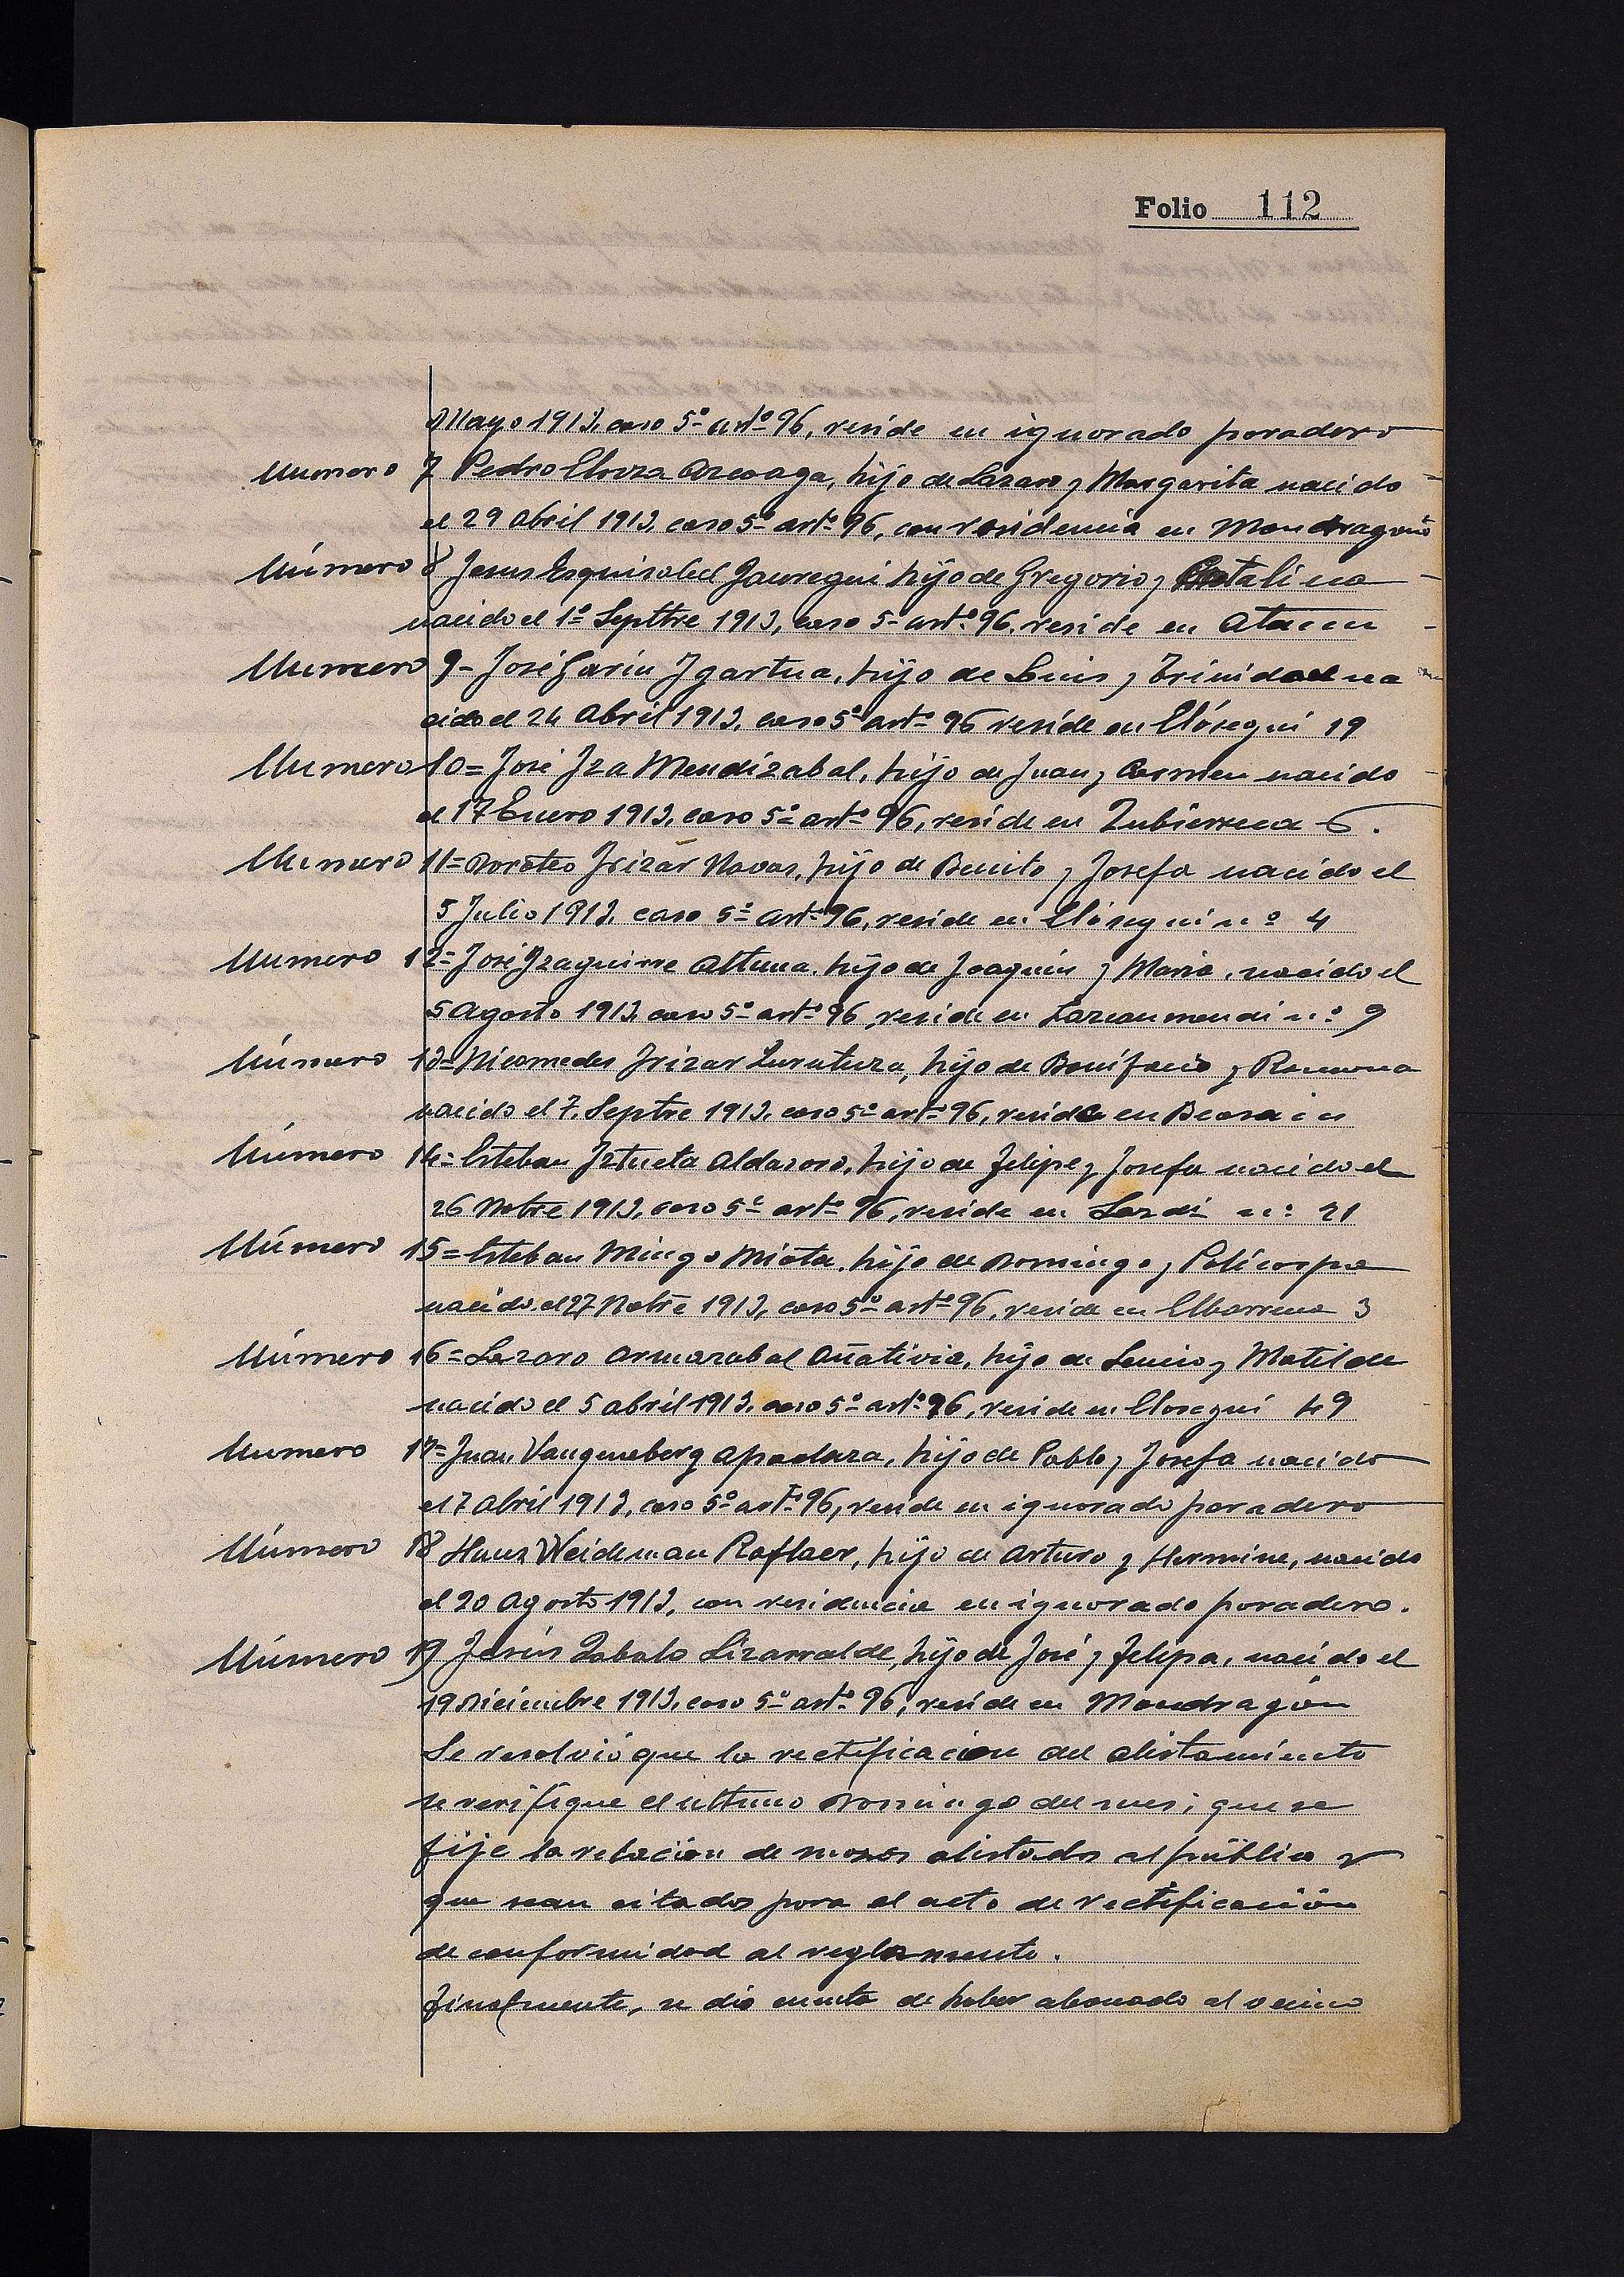 Folio 112
Mayo 1913, caso 5º artº 96, reside en ignorado paradero
Numero 7 Pedro Elorza Arcoaga, hijo de Lazaro y Margarita nacido
el 29 abril 1913, caso 5º artº 96, con residencia en Mondragón
Número 8 Jesus Esquisabel Jauregui hijo de Gregorio y Catalina
nacido el 1º Septtre 1913, caso 5º artº 96, reside en Ataun
Numero 9- José Garin Igartua, hijo de Luis y Trinidad na
cido el 24 Abril 1913, caso 5º artº 96 reside en Elósegui 19
Numero 10= José Iza Mendizabal, hijo de Juan y Carmen nacido
el 17 Enero 1913, caso 5º artº 96, reside en Zubierreca 6.
Numero 11= Doroteo Irizar Navas, hijo de Benito y Josefa nacido el
5 Julio 1913, caso 5º artº 96, reside en Elósegui nº 4
Numero 12= José Izaguirre Altuna, hijo de Joaquin y Maria, nacido el
5 Agosto 1913, caso 5º artº 96, reside en Lazcanmendi nº 9
Número 13= Nicomedes Irizar Zurutuza, hijo de Bonifacio y Ramona
nacido el 7 Septre 1913, caso 5º artº 96, reside en Beasain
Número 14= Esteban Iztueta Aldasoro, hijo de Felipe y Josefa nacido el
26 Nobre 1913, caso 5º artº 96, reside en nº 21
Número 15= Esteban Mingo Miota, hijo de Domingo y Policarpa
nacido el 27 Nobre 1913, caso 5º artº 96, reside en Elbarrena 3
Número 16= Lazaro Armazabal Oñativia, hijo de Lucio y Matilde
nacido el 5 abril 1913, caso 5º artº 96, reside en Elosegui 49
Numero 17= Juan Vangeneberg Apaolaza, hijo de Pablo y Josefa nacido
el 7 Abril 1913, caso 5º artº 96, reside en ignorado paradero
Número 18 Hans Weideman Raflaer, hijo de Arturo y Hermine, nacido
el 20 Agosto 1913, con residencia en ignorado paradero.
Número 19 Jesús Zabala Lizarralde, hijo de José y Felipa, nacido el
19 Diciembre 1913, caso 5º artº 96, reside en Mondragón
Se resolvió que la rectificacion del alistamiento
se verifique el ultimo Domingo del mes; que se
fije la relación de mozos alistados al público y
que sean citados para el acto de rectificación
de conformidad al reglamento.
Finalmente, se dio cuenta de haber abonado al vecino